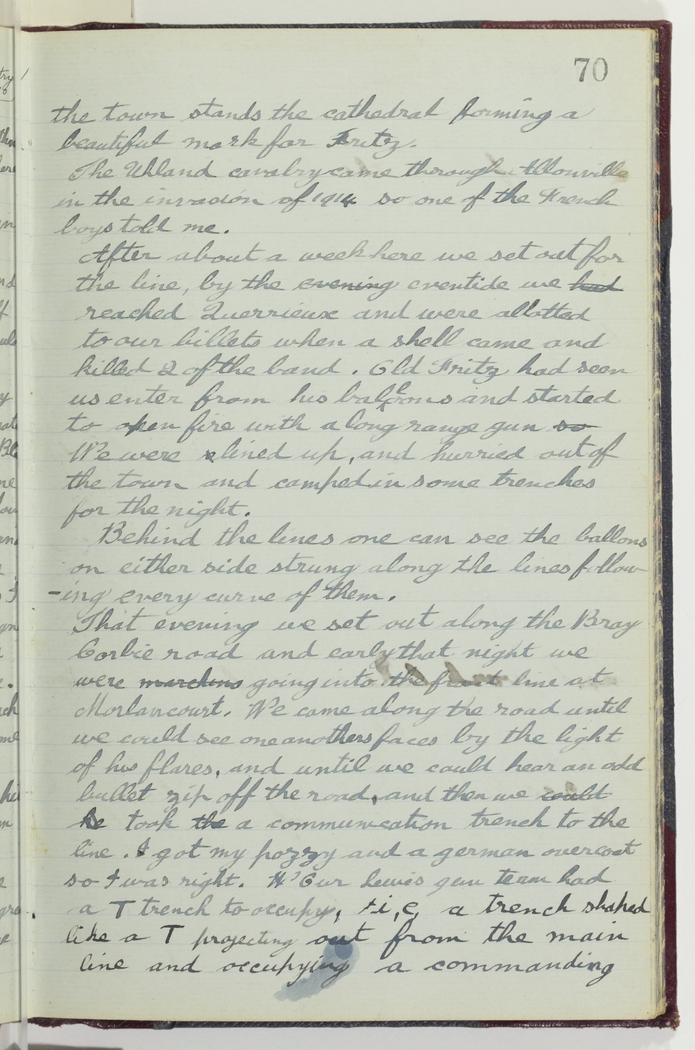 70
the town stands the cathedral forming a
beautiful mark for Fritz.
The Uhland cavalry came through Allonville
in the invasion of 1914 so one of the French
boys told me.
After about a week here we set out for
the line, by the evening eventide we had
reached Querrieux and were allotted
to our billets when a shell came and
killed 2 of the band. Old Fritz had seen
us enter from his balloons and started
to open fire with a long range gun so
We were lined up, and hurried out of
the town and camped in some trenches
for the night.
Behind the lines one can see the ballons
on either side strung along the lines follow-
-ing every curve of them.
That evening we set out along the Bray
Corbie road and early that night we
were marching going into the front line at
Morlancourt. We came along the road until
we could see one anothers faces by the light
of his flares, and until we could hear an odd
bullet zip off the road, and then we could
be took the a communication trench to the
line. I got my pozzy and a german overcoat
so I was right. Our Lewis gun team had
a T trench to occupy, i,e, a trench shaped
like a T projecting out from the main
line and occupying a commanding